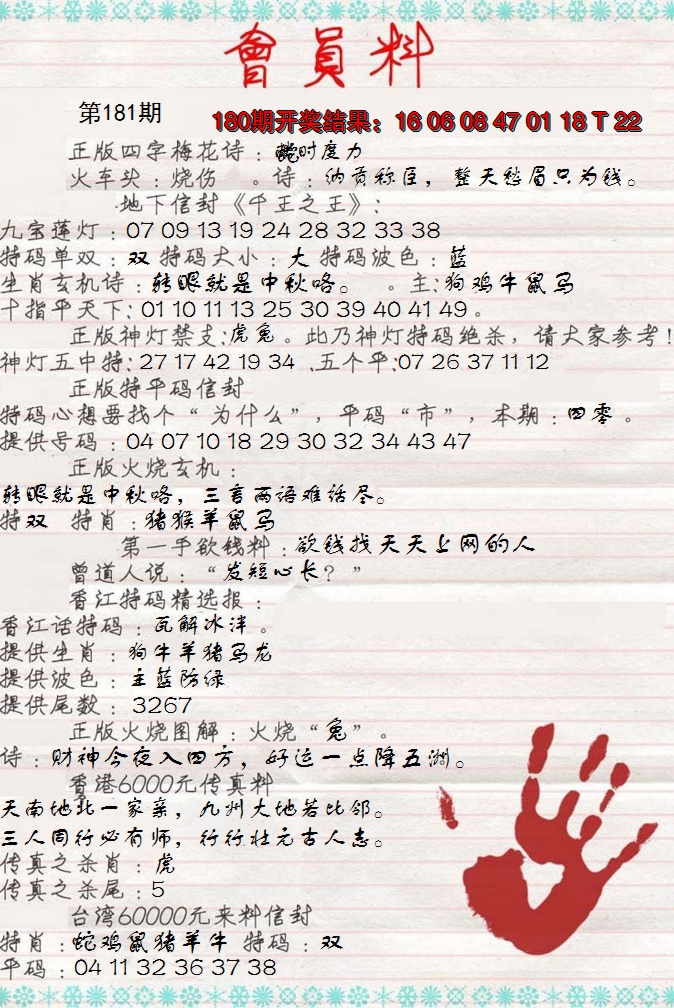 會員料
第181期
180期开奖结果：16 06 08 47 01 18 T 22
正版四字梅花诗：时度力
火车头：烧伤 。诗：纳贡称臣，整天愁眉只为钱。
地下信封《千王之王》：
九宝莲灯：07 09 13 19 24 28 32 33 38
特码单双：双 特码大小：大 特码波色：蓝
生肖玄机诗：转眼就是中秋咯。 。主：狗鸡牛鼠马
十指平天下：01 10 11 13 25 30 39 40 41 49。
正版神灯禁支：虎兔。此乃神灯特码绝杀，请大家参考！
神灯五中特：27 17 42 19 34 、五个平：07 26 37 11 12
正版特平码信封
特码心想要找个“为什么”，平码“市”，本期：四零。
提供号码：04 07 10 18 29 30 32 34 43 47
正版火烧玄机：
转眼就是中秋咯，三言两语难话尽。
特双 特肖：猪猴羊鼠马
第一手欲钱料：欲钱找天天上网的人
曾道人说：“发短心长？”
香江特码精选报：
香江话特码：瓦解冰泮。
提供生肖：狗牛羊猪马龙
提供波色：主蓝防绿
提供尾数：3267
正版火烧图解：火烧“兔”。
诗：财神今夜入四方，好运一点降五洲。
香港6000元传真料
天南地北一家亲，九州大地若比邻。
三人同行必有师，行行壮元古人志。
传真之杀肖：虎
传真之杀尾：5
台湾60000元来料信封
特肖：蛇鸡鼠猪羊牛 特码：双
平码：04 11 32 36 37 38